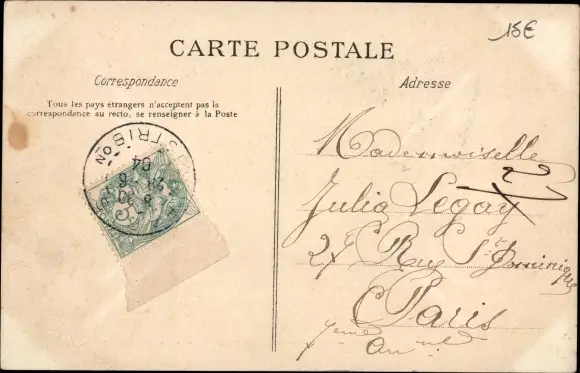 15€
CARTE POSTALE
Correspondance
Adresse
Tous les pays étrangers n'acceptent pas la
correspondance au recto, se renseigner à la Poste
TRIBON
04
5
Mademoiselle
Julia Legay
27 Rue St Dominique
Paris
7eme